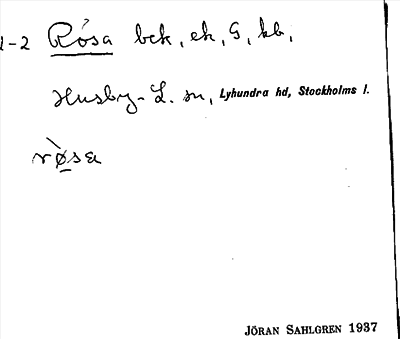 1-2 Rósa bck, ek, G, kb,
Husby-L. sn, Lyhundra hd, Stockholms l.
rø̀sa
JÖRAN SAHLGREN 1937